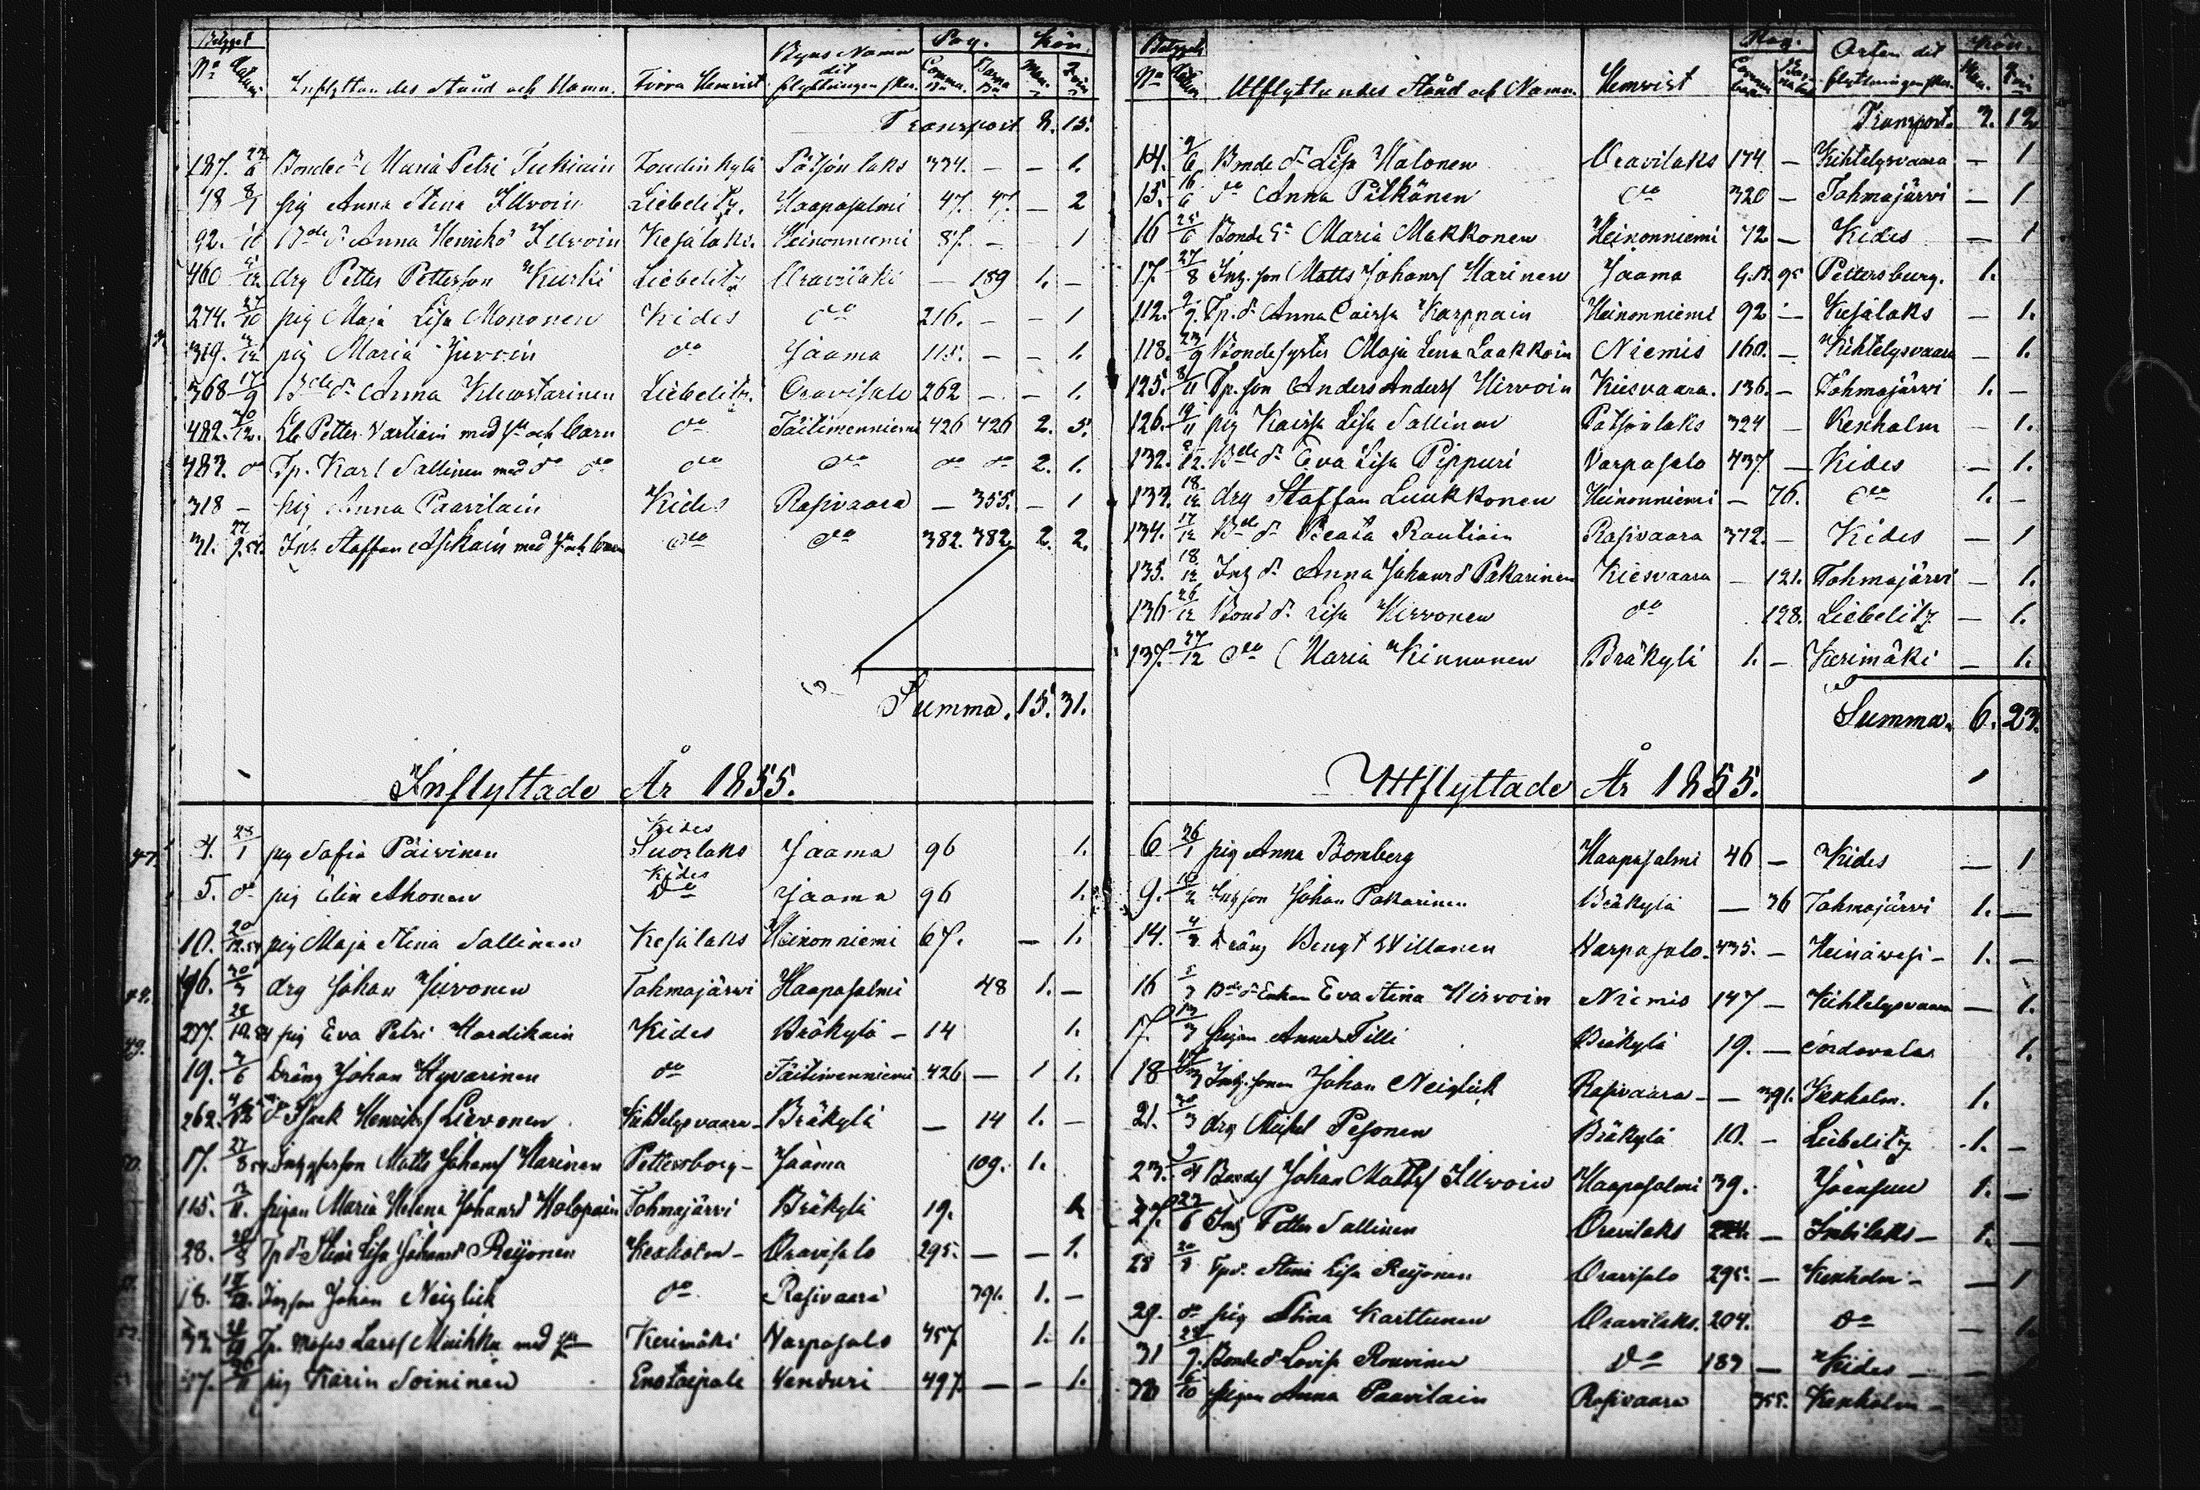 Betyget Pag. Kön.
No Datum. Inflyttandes Stånd och Namn. Förra Hemvist Byns Namn dit flyttningen sker. Commu. B. Barna B. Man. Qvin.
Transport 8. 15.
187. Bonde dr Maria Petri Tukiain Loudinkylä Pötsönlaks 334. — — 1.
18 8/1 pig Anna Stina Illvoin Liebelitz. Haapasalmi 47. 47. — 2
92. Bde dr Anna Henriks Illvoin Kesälaks. Heinonniemi 87. — 1
460 drg Petter Petterson Kurki Liebelitz — 189 1. —
274. 27/10 pig Maja Lisa Mononen Kides do 216. — — 1
319. pig Maria Jurvoin do Jaama 115. — — 1.
368 17/9 Bde dr Anna Liebelitz. Oravisalo 262 — — 1.
482. 30/12. Petter Vartiain med hu och barn do Täitimenniemi 426 426 2. 5.
483. do Tp. Karl Sallinen med do do do do do do 2. 1.
318 — pig Anna Paavilain Kides Rasivaara — 355. — 1
31. Inh Staffan Asikain med hu och barn do do 382. 382. 2. 2.
Summa. 15. 31.
Inflyttade År 1855.
4. 28/1 pig Sofia Päivinen Kides Suorlaks Jaama 96 1.
5. do pig Elin Ahonen Kides Do Jaama 96 1.
10. pig Maja Stina Sallinen Kesälaks Heinonniemi 67. — 1.
196. 30/3 drg Johan Jurvonen Tohmajärvi Haapasalmi 48 1. —
237. pig Eva Petri Hardikain Kides Bräkylä — 14 1.
19. 3/6 Dräng Johan Hyvarinen do Täitimenniemi 426 — 1 1.
262. do Isaak Henriks Lievonen Kihtelysvaara — Bräkylä — 14 1. —
17. 27/8 Inhysesson Matts Johans Harinen Pettersborg — Jaama 109. 1.
115. pigan Maria Helena Johansd Holopain Tohmajärvi Bräkylä 19. 1.
28. Tp dr Stina Lisa Johansd Reijonen Kexholm — Oravisalo 295. — — 1.
18. Inhson Johan Neiglick do Rasivaara 391. 1. —
33. Tp. Moses Larss Muikku med hu Kerimäki Varpasalo 457. 1. 1.
37. pig Karin Soininen Enotaipale Venduri 497. — — 1.
Betyget Pag. Kön.
No Datum Utflyttandes Stånd och Namn. Hemvist Commu. Barna Orten dit flyttningen sker. Man. Qvin
Transport. 3. 12
14. 9/6 Bonde dr Lisa Halonen Oravilaks 174 — Kihtelysvaara — 1
15. 16/6 do Anna Pitkänen do 320 — Tohmajärvi — 1
16 25/6 Bonde dr Maria Makkonen Heinonniemi 72 — Kides — 1
17. 27/8 Inh. son Matts Johans Harinen Jaama 95 Pettersburg. 1.
112. Tp. dr Anna Caisa Karppain Heinonniemi 92 — Kesälaks — 1.
118. 23/9 Bondesyster Maja Lena Laakkoin Niemis 160. — Kihtelysvaara — 1.
125. 8/11 Tp. son Anders Anders Hirvoin Kiesvaara. 136. — Tohmajärvi 1. —
126. 19/11 pig Kaisa Lisa Sallinen Pötsönlaks 324 — Kexholm — 1.
132. Bde dr Eva Lisa Pippuri Varpasalo 437 — Kides — 1.
133. 18/12 drg Staffan Luukkonen Heinonniemi — 76. do 1. —
134. 17/12 Bde dr Beata Rautiain Rasivaara 372. — Kides — 1
135. 18/12 Inh dr Anna Johansd Pakarinen Kiesvaara — 121. Tohmajärvi — 1.
136 26/12 Bond dr Lisa Hirvonen do 128. Liebelitz — 1.
137. 27/12 do Maria Kinnunen Bräkylä 1. — Kerimäki — 1.
Summa. 6. 23.
Utflyttade År 1855.
6 26/1 pig Anna Bomberg Haapasalmi 46 — Kides — 1
9. Inhson Johan Pakarinen Bräkylä — 36 Tohmajärvi 1. —
14. 4/3 Dräng Bengt Willanen Varpasalo. 435. — Heinäwesi — 1. —
16 5/3 Bde dr Enkan Eva Stina Hirvoin Niemis 147 — Kihtelysvaara — 1.
17. 13/3 pigan Anna Tilli Bräkylä 19. — Sordavala 1.
18 Inh. sonen Johan Neiglick Rasivaara — — 391. Kexholm. 1.
21. 30/3 drg Michel Pesonen Bräkylä 10. — Liebelitz 1. —
23. Bondes Johan Matts Illvoin Haapasalmi 39. Joensuu 1. —
27. 23/6 Inh Petter Sallinen Oravilaks — Imbilaks — 1. —
28 20/8 Tp dr. Stina Lisa Reijonen Oravisalo 295. — Kexholm — — 1
29. do pig Stina Karttunen Oravilaks. 204. Do — 1.
31 Bonde dr Lovisa Rouvinen Do 183 — Kides —
38 6/10 pigan Anna Paavilain Rasivaara 355. Kexholm —